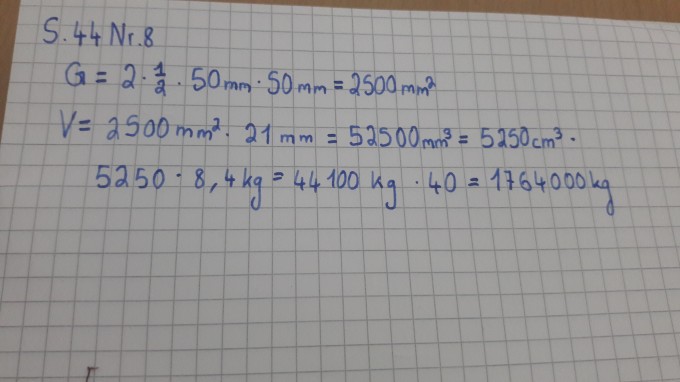 S. 44 Nr. 8
G = 2 · 1/2 · 50 mm · 50 mm = 2500 mm²
V = 2500 mm² · 21 mm = 52500 mm³ = 5250 cm³ ·
5250 · 8,4 kg = 44100 kg · 40 = 1764000 kg